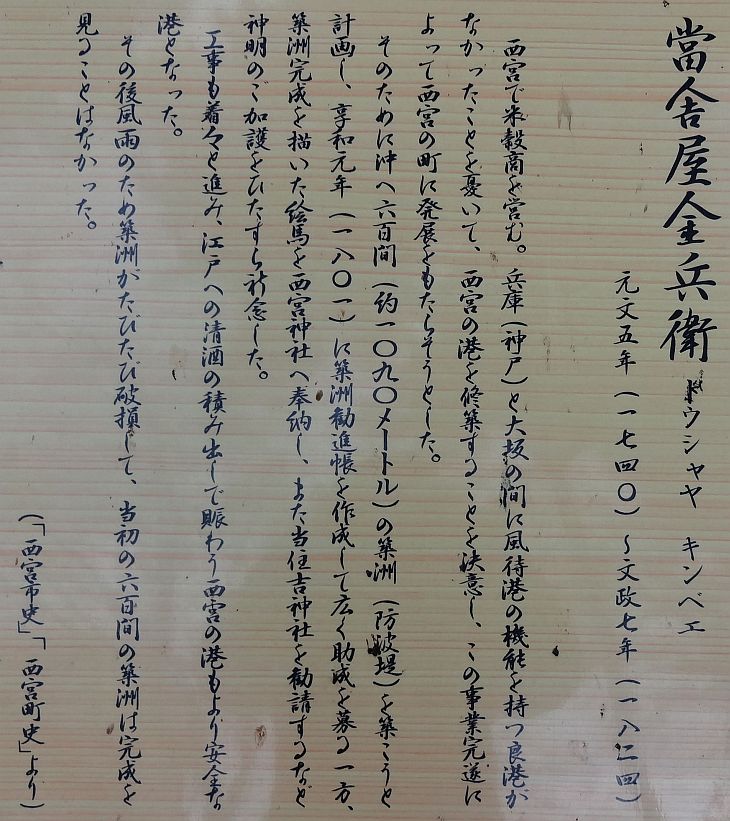 當舎屋金兵衛 トウシャヤ キンベエ
元文五年(一七四〇)〜文政七年(一八二四)
西宮で米穀商を営む。兵庫(神戸)と大坂の間に風待港の機能を持つ良港が
なかったことを憂いて、西宮の港を修築することを決意し、この事業完遂に
よって西宮の町に発展をもたらそうとした。
そのために沖へ六百間(約一〇九〇メートル)の築洲(防波堤)を築こうと
計画し、享和元年(一八〇一)に築洲勧進帳を作成して広く助成を募る一方、
築洲完成を描いた絵馬を西宮神社へ奉納し、また当住吉神社を勧請するなど
神明のご加護をひたすら祈念した。
工事も着々と進み、江戸への清酒の積み出しで賑わう西宮の港もより安全な
港となった。
その後風雨のため築洲がたびたび破損して、当初の六百間の築洲は完成を
見ることはなかった。
(「西宮市史」「西宮町史」より)